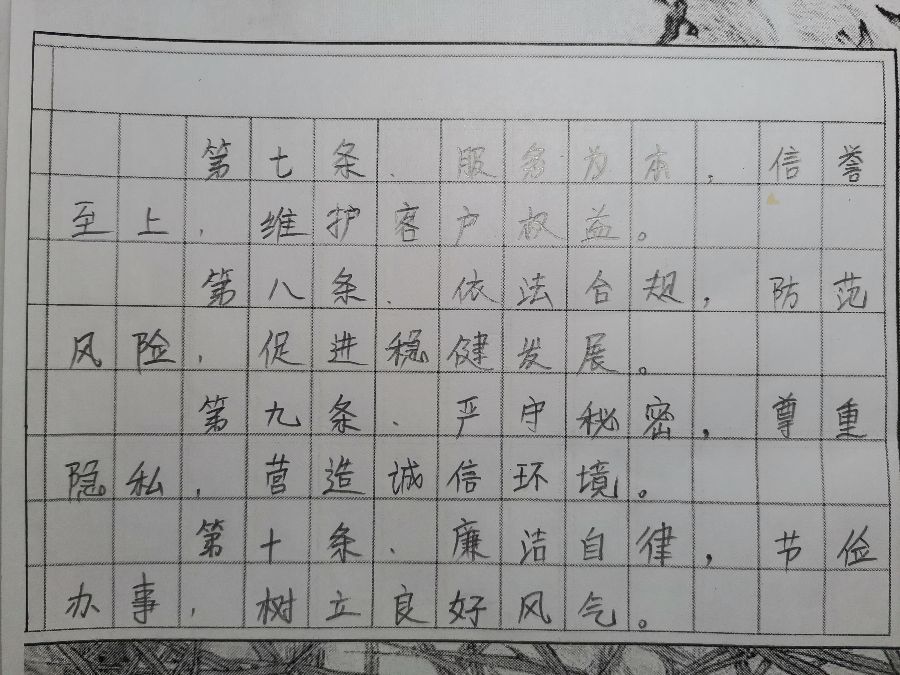 第七条、服务为本，信誉
至上，维护客户权益。
第八条、依法合规，防范
风险，促进稳健发展。
第九条、严守秘密，尊重
隐私，营造诚信环境。
第十条、廉洁自律，节俭
办事，树立良好风气。